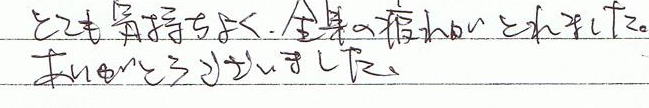 とても気持ちよく、全身の疲れがとれました。
ありがとうございました。